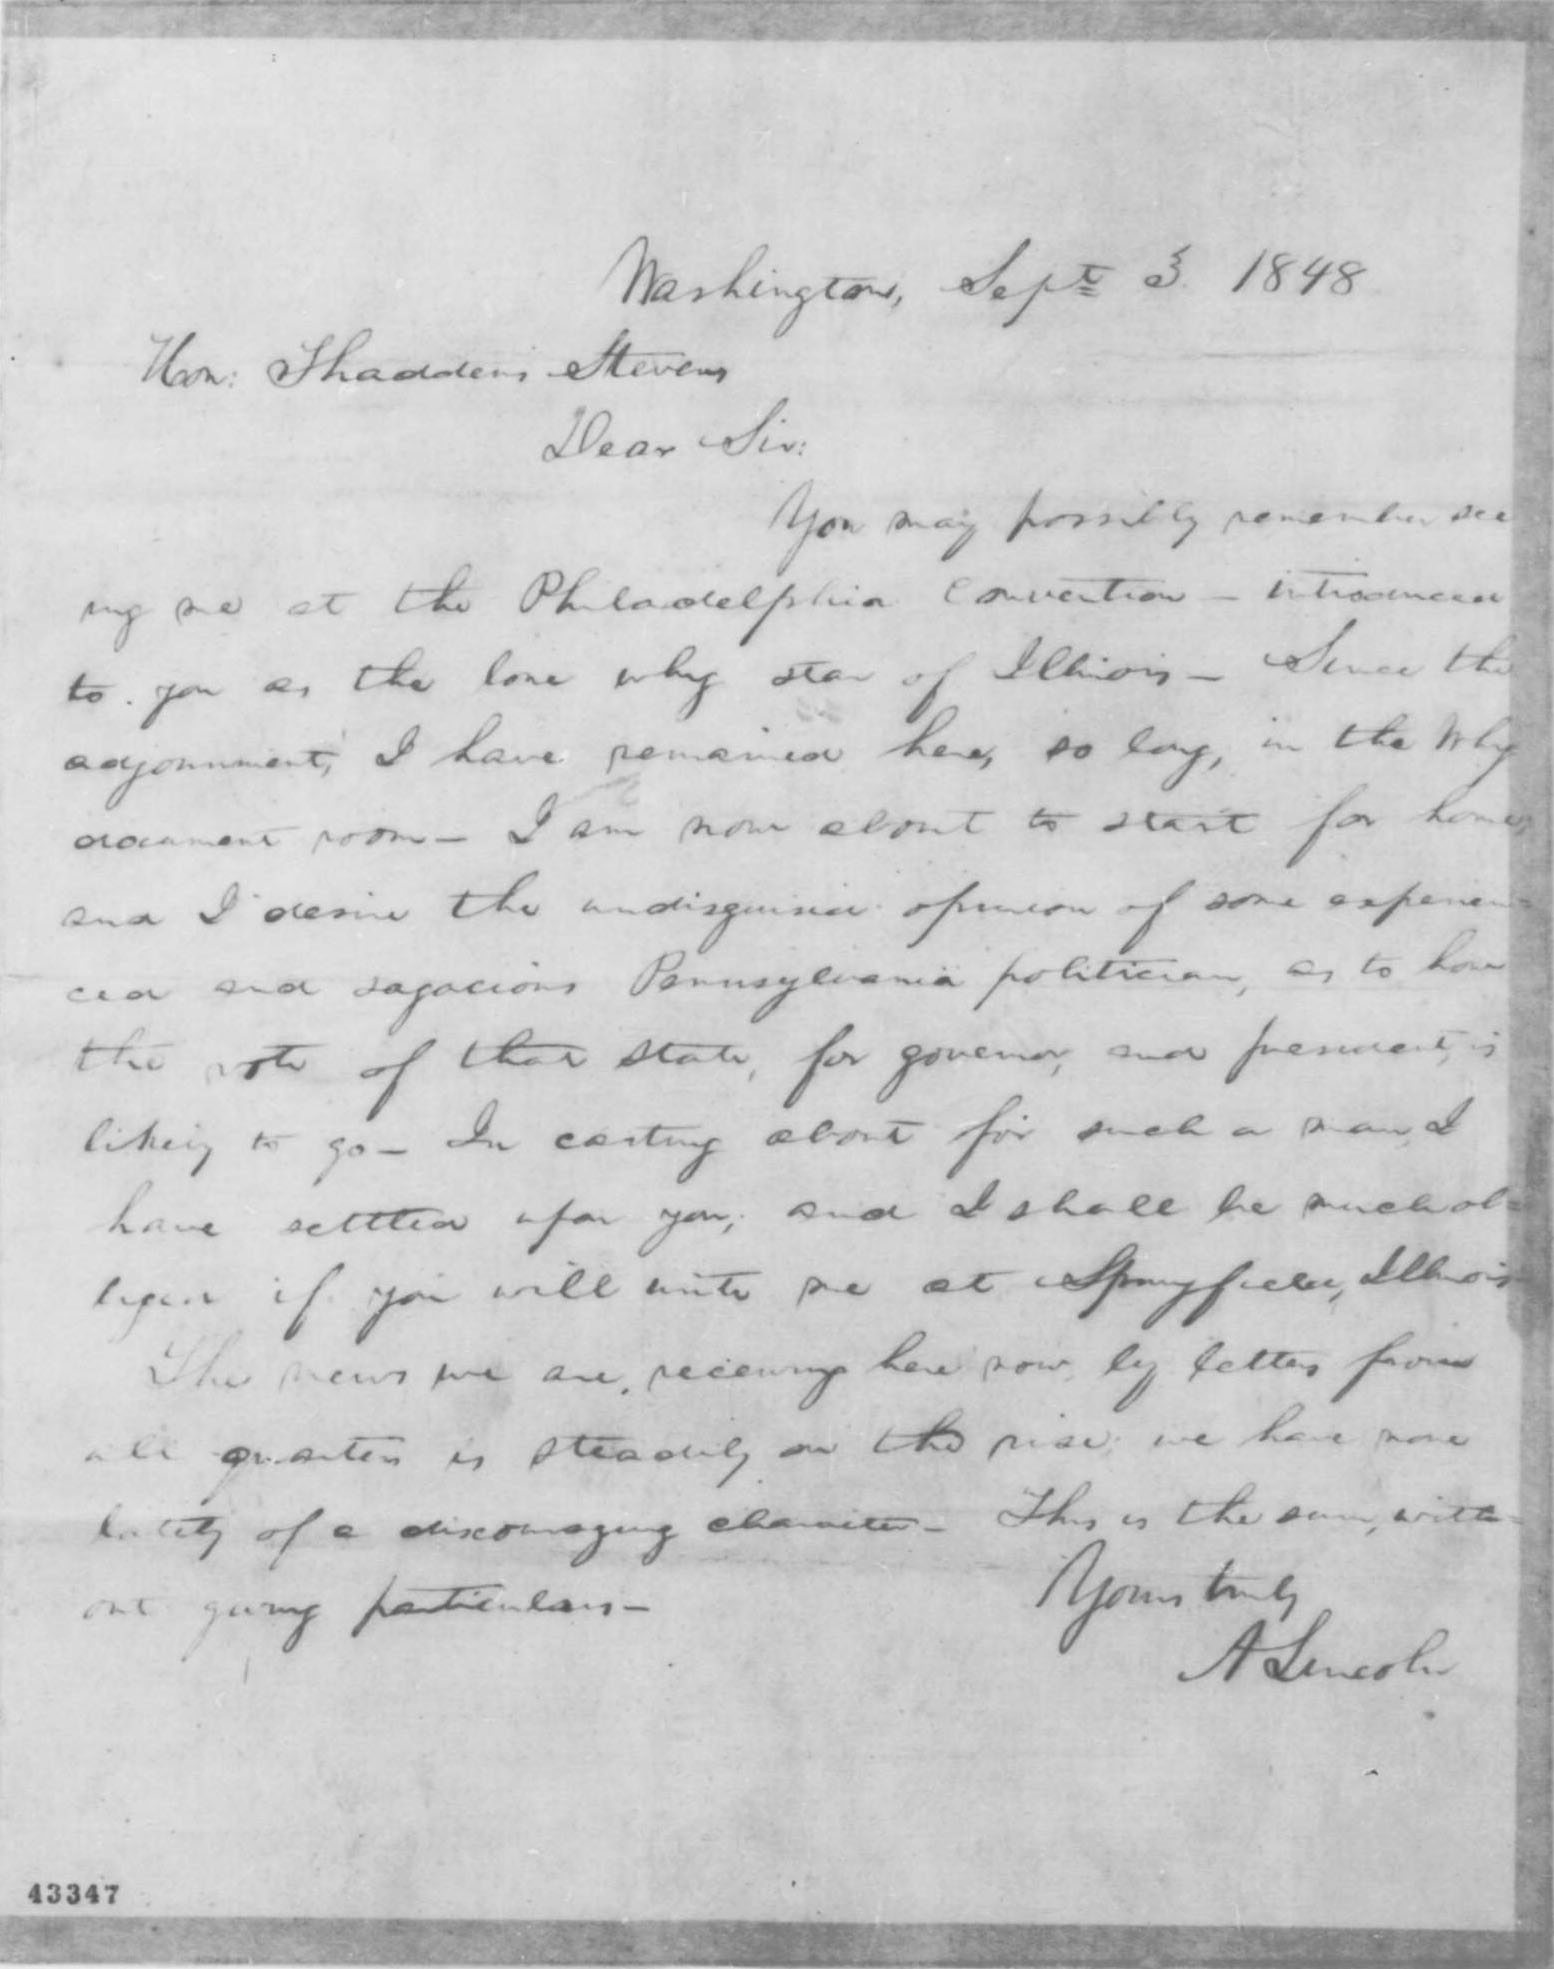 Washington, Sept. 3. 1848
Hon: Thaddeus Stevens
Dear Sir:
You may possibly remember see
ing me at the Philadelphia Convention — introduced
to you as the lone whig star of Illinois — Since the
adjournment, I have remained here, so long, in the Whig
document room — I am now about to start for home,
and I desire the undisguised opinion of some experien=
ced and sagacious Pennsylvania politician, as to how
the vote of that state, for governor, and president, is
likely to go — In casting about for such a man, I
have settled upon you; and I shall be much ob=
liged if you will write me at Springfield, Illinois
The news we are receiving here now, by letters from
all quarters is steadily on the rise; we have none
lately of a discouraging character — This is the sum, with=
out giving particulars —
Yours truly
A Lincoln
43347